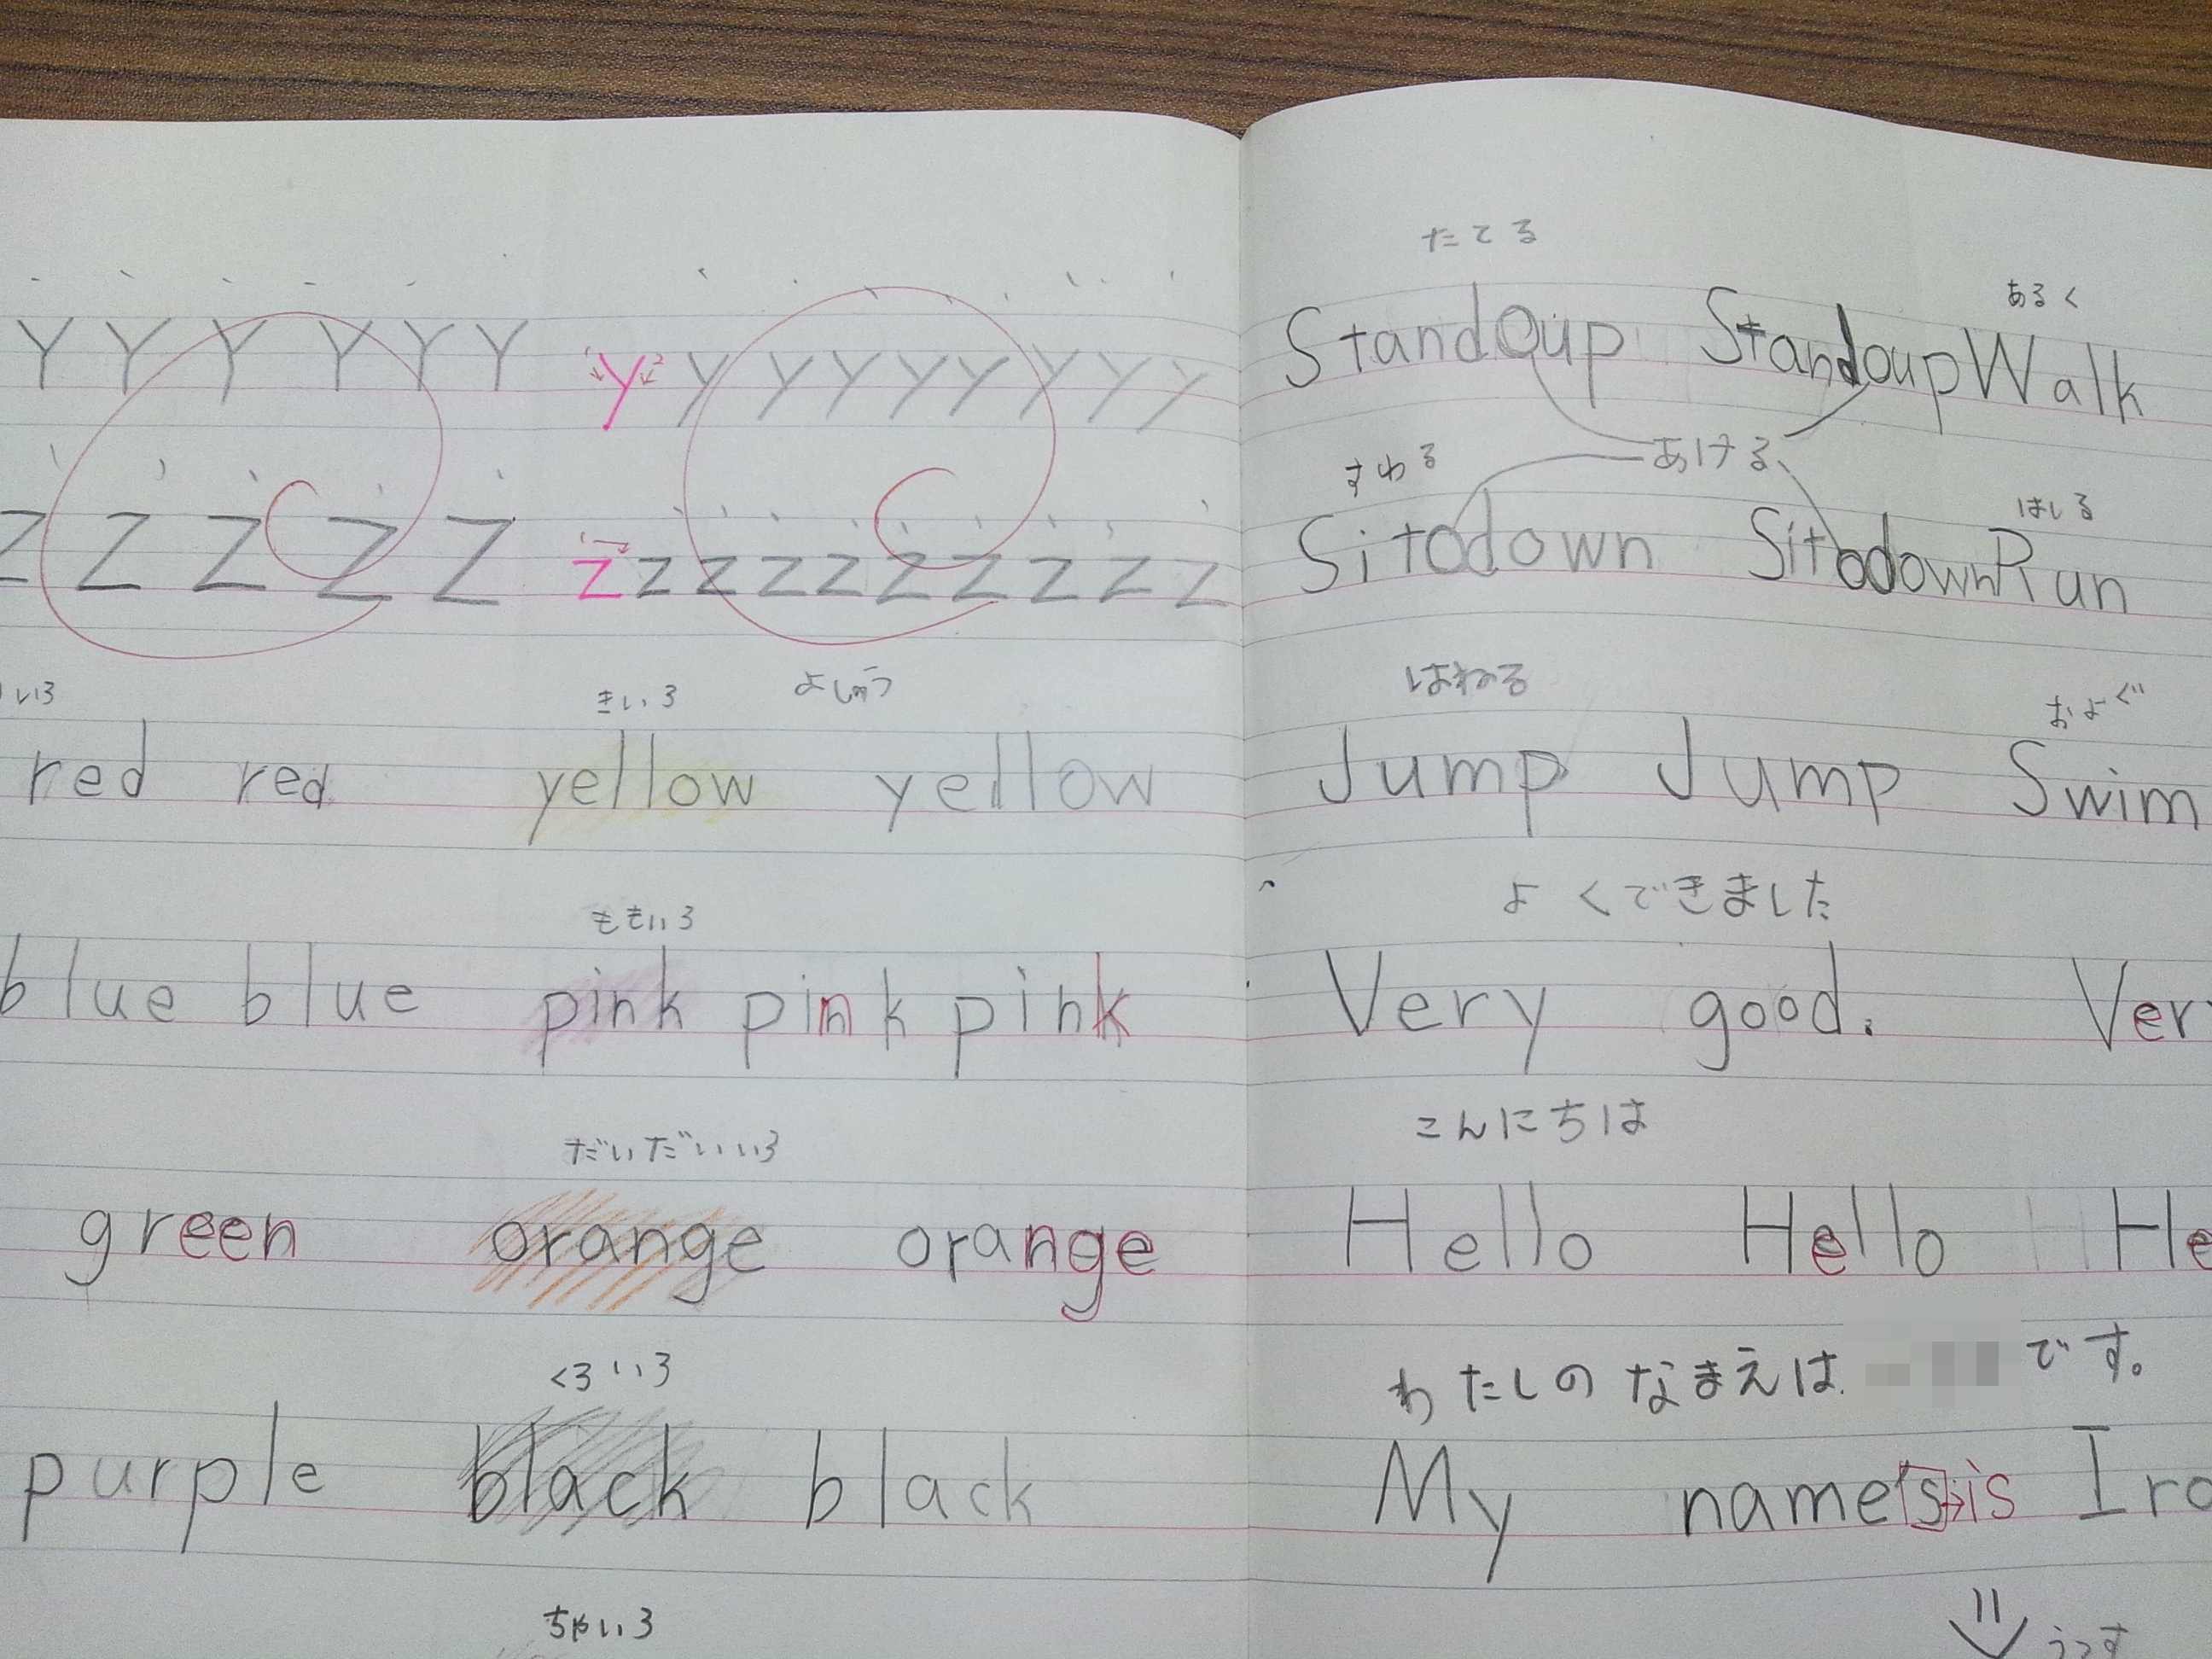 Y Y Y Y Y Y y y y y y y y y y
Z Z Z Z Z z z z z z z z z z
きいろ よしゅう
red red yellow yellow
ももいろ
blue blue pink pink pink
だいだいいろ
green orange orange
くろいろ
purple black black
ちゃいろ
たてる
あるく
StandOup Standoup Walk
あける
すわる
はしる
Sitodown Sitodown Run
はねる
およぐ
Jump Jump Swim
よくできました
Very good.
こんにちは
Hello Hello
わたしのなまえは です。
My name's→is
うつす